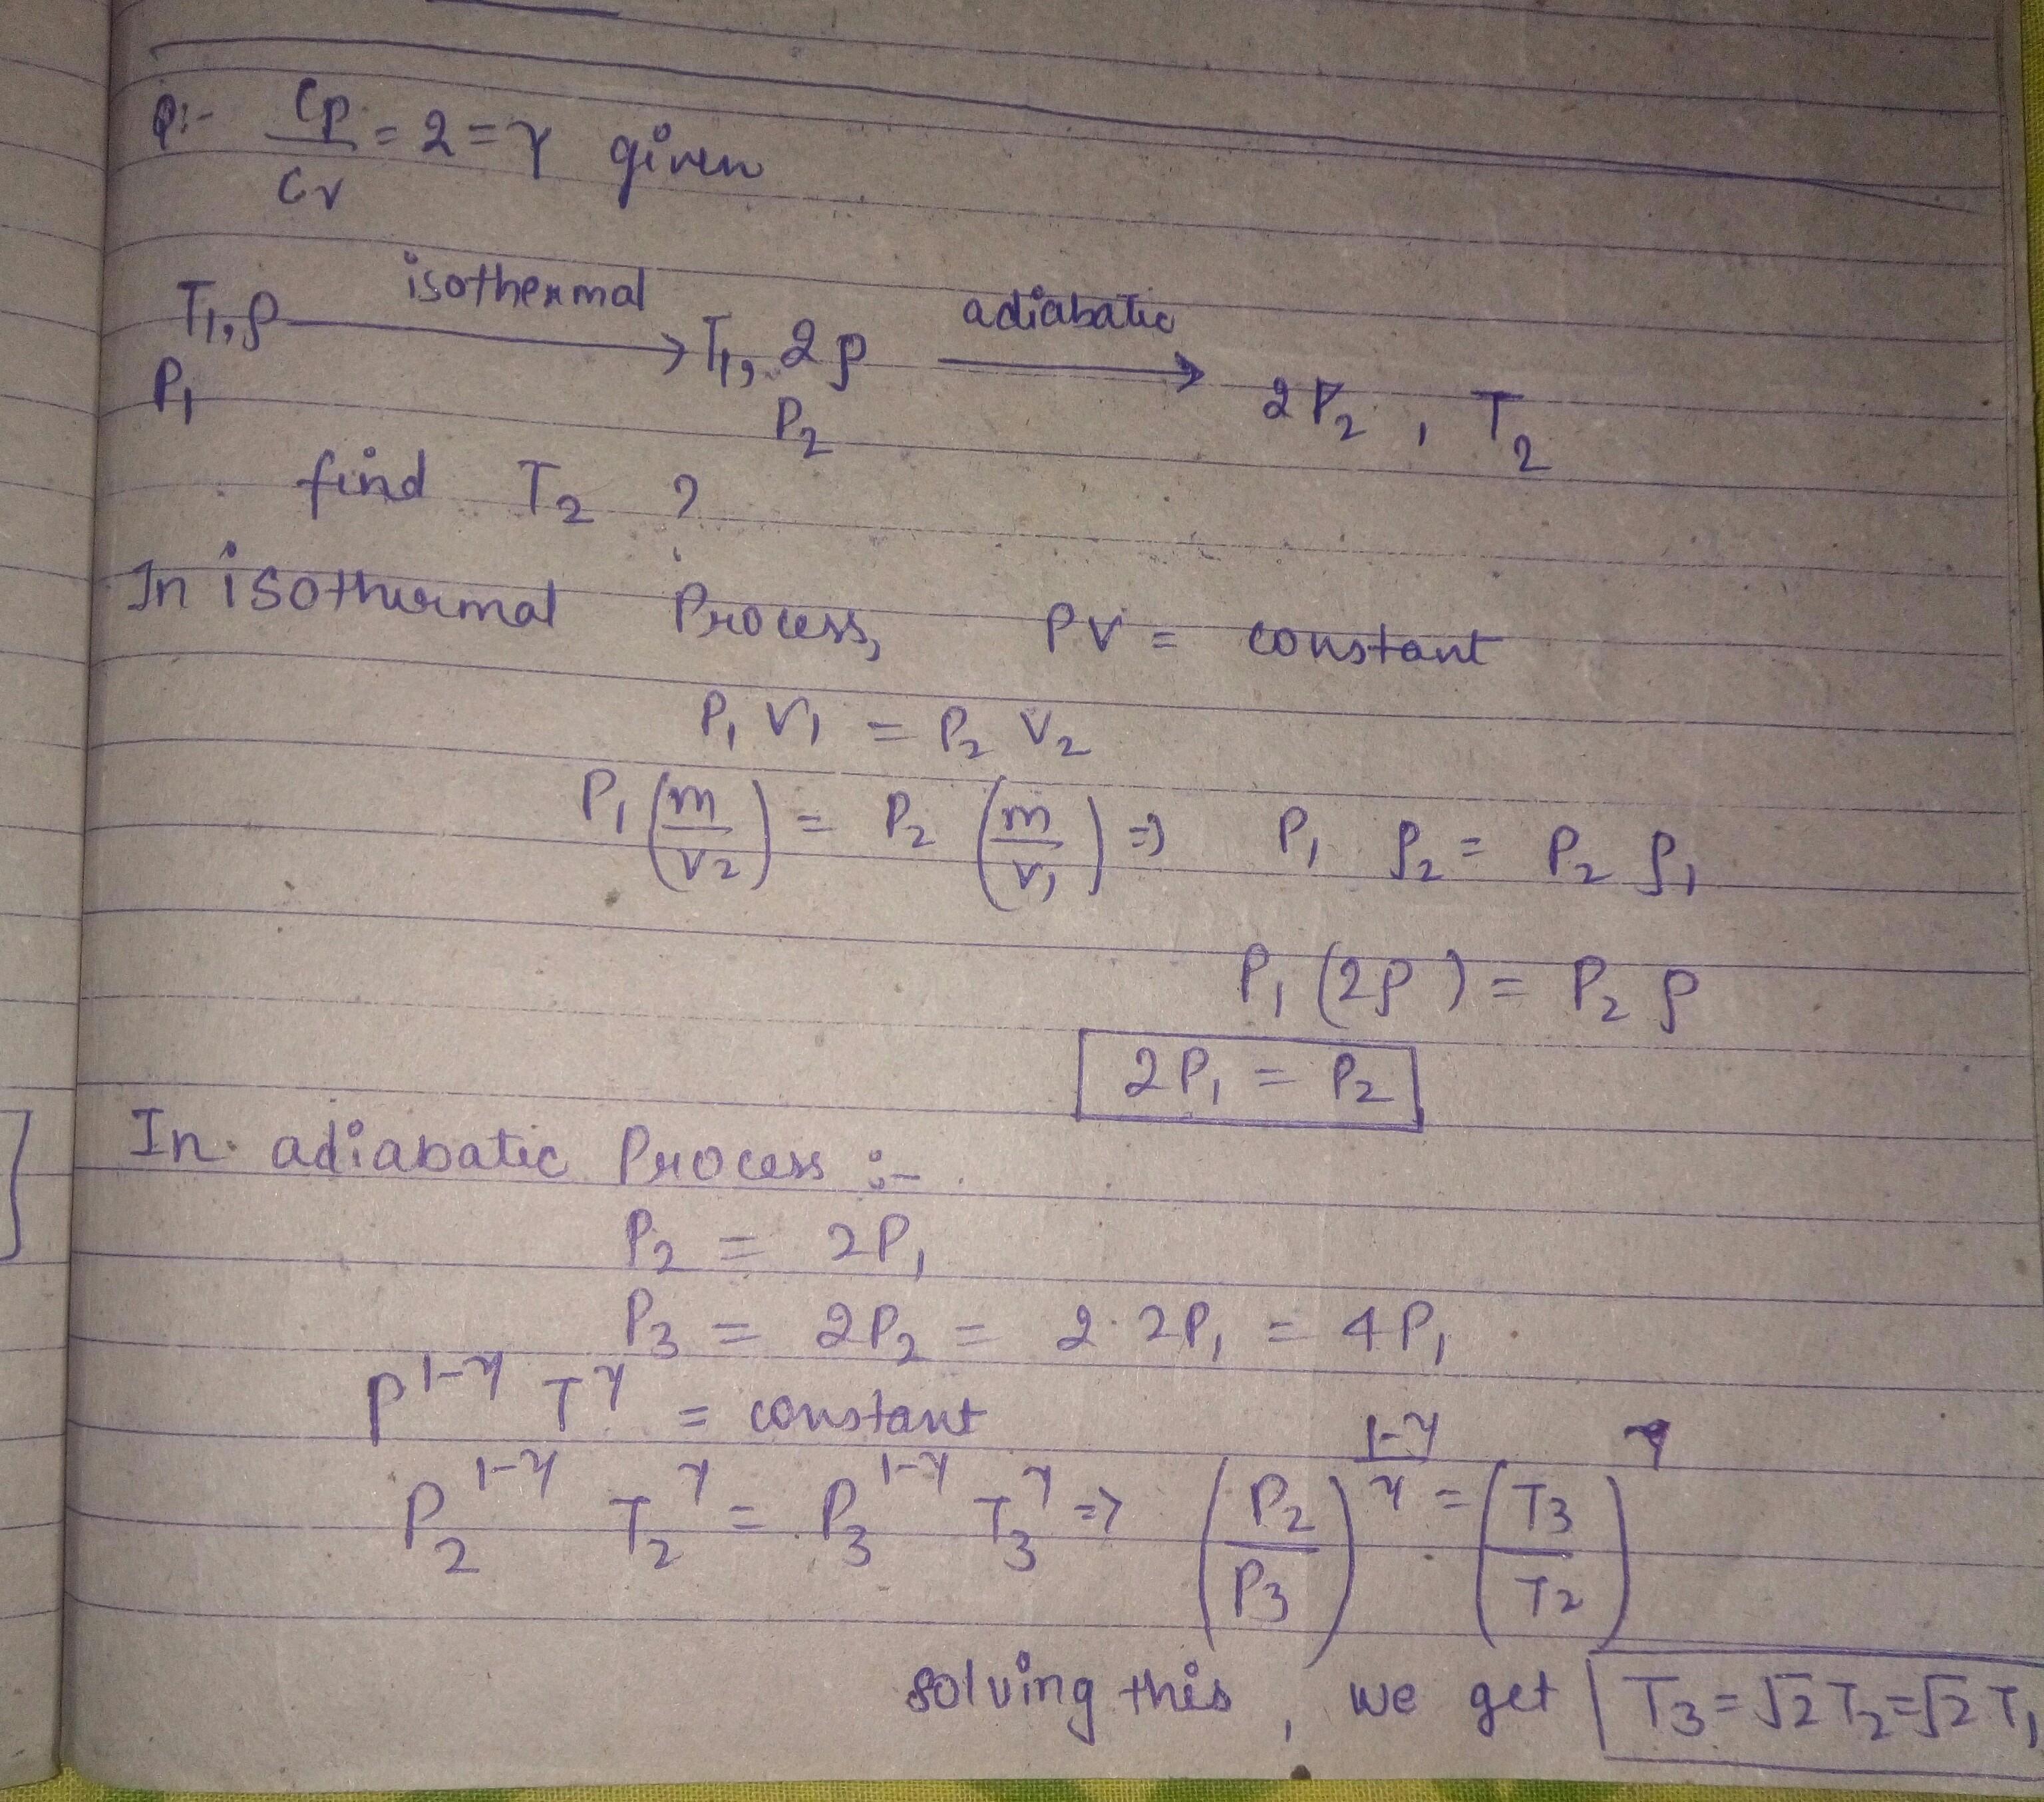 Q:- Cp/Cv = 2 = γ given
T₁, ρ isothermal → T₁, 2ρ adiabatic → 2P₂ , T₂
P₁ P₂
find T₂ ?
In isothermal Process, PV = constant
P₁ V₁ = P₂ V₂
P₁ (m/V₂) = P₂ (m/V₁) => P₁ ρ₂ = P₂ ρ₁
P₁ (2ρ) = P₂ ρ
2P₁ = P₂
In adiabatic Process :-
P₂ = 2P₁
P₃ = 2P₂ = 2·2P₁ = 4P₁
P^(1-γ) T^γ = constant
P₂^(1-γ) T₂^γ = P₃^(1-γ) T₃^γ => (P₂/P₃)^((1-γ)/γ) = (T₃/T₂)
solving this, we get T₃ = √2 T₂ = √2 T₁